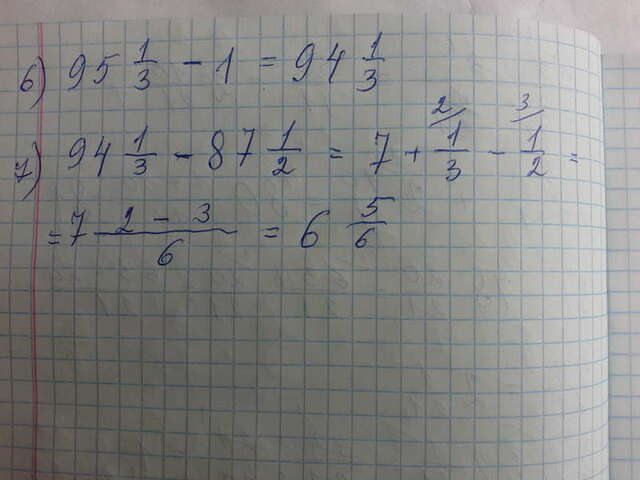 6) 95 1/3 - 1 = 94 1/3
7) 94 1/3 - 87 1/2 = 7 + 2/ 1/3 - 3/ 1/2 =
= 7 (2 - 3)/6 = 6 5/6